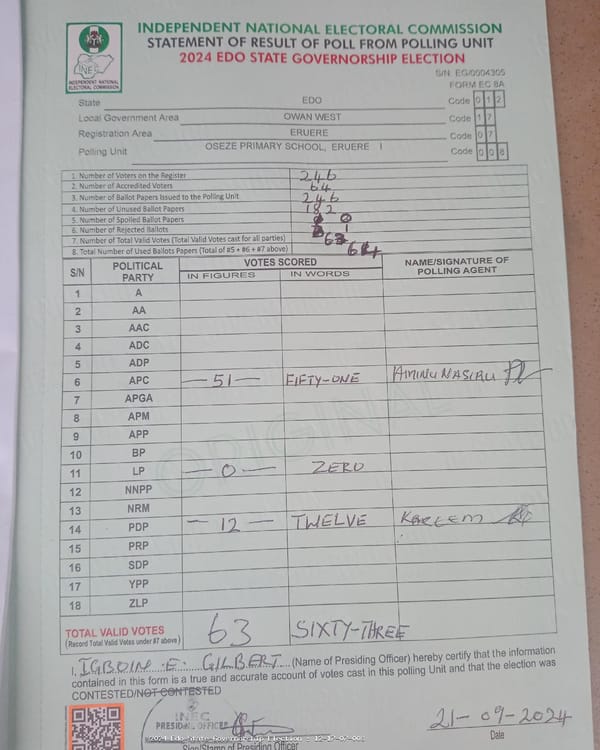 INDEPENDENT NATIONAL ELECTORAL COMMISSION
STATEMENT OF RESULT OF POLL FROM POLLING UNIT
2024 EDO STATE GOVERNORSHIP ELECTION
INEC
INDEPENDENT NATIONAL ELECTORAL COMMISSION
S/N: EG/0004305
FORM EC 8A
State EDO Code 0 1 2
Local Government Area OWAN WEST Code 1 7
Registration Area ERUERE Code 0 7
Polling Unit OSEZE PRIMARY SCHOOL, ERUERE I Code 0 0 8
1. Number of Voters on the Register 246
2. Number of Accredited Voters 64
3. Number of Ballot Papers Issued to the Polling Unit 246
4. Number of Unused Ballot Papers 182
5. Number of Spoiled Ballot Papers 0
6. Number of Rejected Ballots 1
7. Number of Total Valid Votes (Total Valid Votes cast for all parties) 63
8. Total Number of Used Ballots Papers (Total of #5 + #6 + #7 above) 64
S/N POLITICAL PARTY VOTES SCORED NAME/SIGNATURE OF POLLING AGENT
IN FIGURES IN WORDS
1 A
2 AA
3 AAC
4 ADC
5 ADP
6 APC —51— FIFTY-ONE AMINU NASIRU
7 APGA
8 APM
9 APP
10 BP
11 LP —0— ZERO
12 NNPP
13 NRM
14 PDP —12— TWELVE KAREEM
15 PRP
16 SDP
17 YPP
18 ZLP
ORIGINAL
TOTAL VALID VOTES 63 SIXTY-THREE
(Record Total Valid Votes under #7 above)
I, IGBOIN .E. GILBERT (Name of Presiding Officer) hereby certify that the information
contained in this form is a true and accurate account of votes cast in this polling Unit and that the election was
CONTESTED/NOT CONTESTED
INEC
PRESIDING OFFICER 21-09-2024
2024 Edo State Governorship Election - 12-17-07-008
Sign/Stamp of Presiding Officer Date